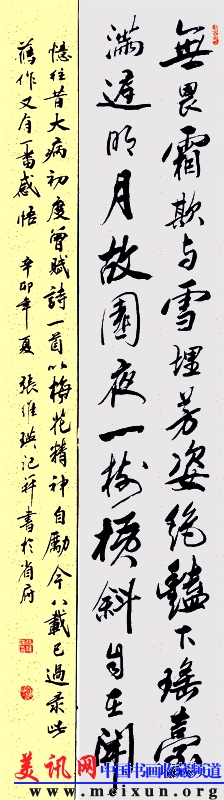 無畏霜欺与雪埋芳姿絶艷下瑤臺
滿遲明月故園夜一樹横斜自在開
憶往昔大病初度曾賦詩一首以梅花精神自勵今八載已過录此
舊作又有一番感悟 辛卯年夏 張維瑛記并書於省府
美讯网 中国书画收藏频道
www.meixun.org